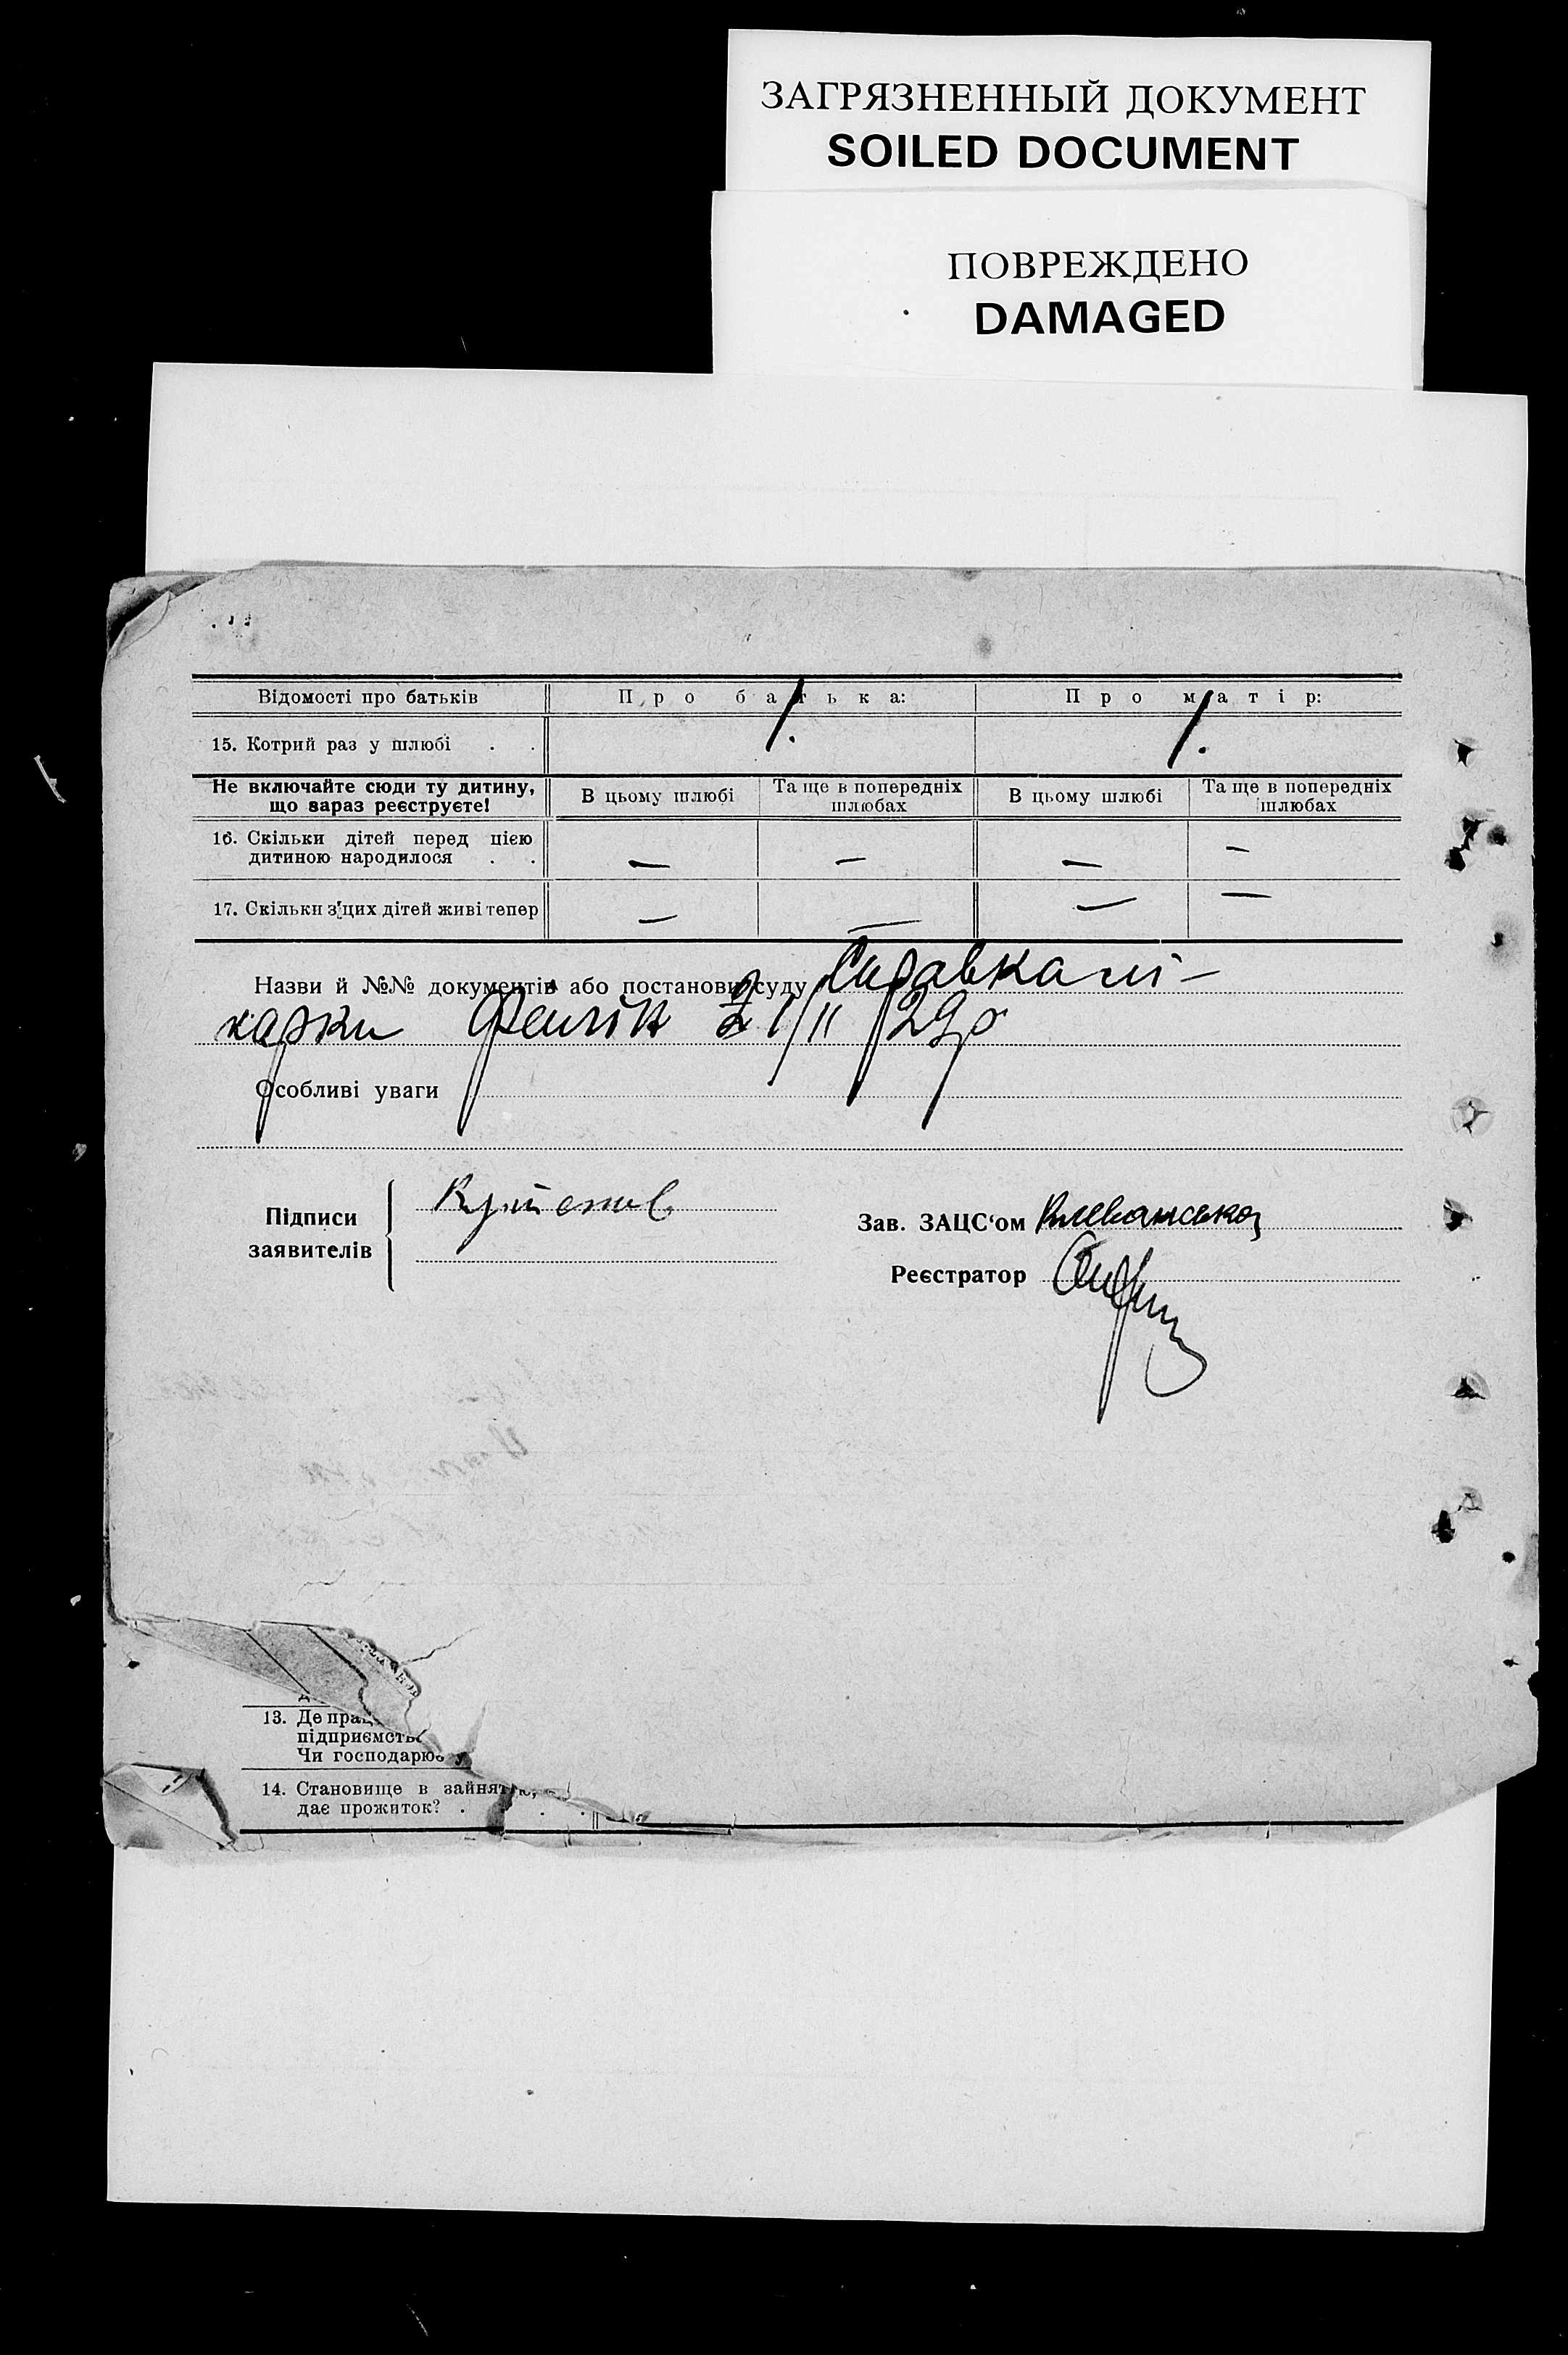 ЗАГРЯЗНЕННЫЙ ДОКУМЕНТ
SOILED DOCUMENT
ПОВРЕЖДЕНО
DAMAGED
Відомості про батьків Про батька: Про матір:
15. Котрий раз у шлюбі . . 1. 1.
Не включайте сюди ту дитину, що вараз реєструєте!
В цьому шлюбі
Та ще в попередніх шлюбах
В цьому шлюбі
Та ще в попередніх шлюбах
16. Скільки дітей перед цією
дитиною народилося . . — — — —
17. Скільки з цих дітей живі тепер — — — —
Назви й №№ документів або постанови суду Справка лі-
карки
Особливі уваги
Підписи
заявителів
Зав. ЗАЦС‘ом
Реєстратор
13. Де
підприємств
Чи господарює у
14. Становище в
дає прожиток? . . .